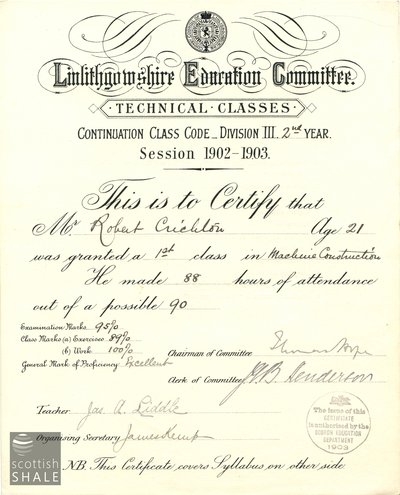 Linlithgowshire Education Committee.
TECHNICAL CLASSES
CONTINUATION CLASS CODE - DIVISION III. 2nd YEAR.
SESSION 1902-1903.
This is to Certify that
Mr Robert Crichton Age 21
was granted a 1st class in Machine Construction
He made 88 hours of attendance
out of a possible 90
Examination Marks 95%
Class Marks (a) Exercises 89%
(b) Work 100%
General Mark of Proficiency Excellent
Chairman of Committee Thomas Hope
Clerk of Committee J.G.B. Henderson
Teacher Jas. A. Liddle
Organising Secretary James Kemp
The issue of this
CERTIFICATE
is authorised by the
SCOTCH EDUCATION
DEPARTMENT
1903
N.B. This Certificate covers Syllabus on other side
scottish
SHALE